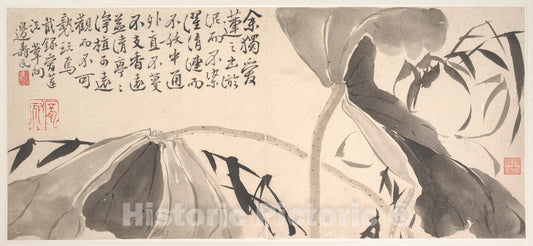 余獨愛
蓮之出淤
泥而不染
濯清漣而
不妖中通
外直不蔓
不支香遠
益清亭〻
淨植可遠
觀而不可
褻玩焉
截錄愛蓮
說葦間
邊壽民
Historic Pictoric